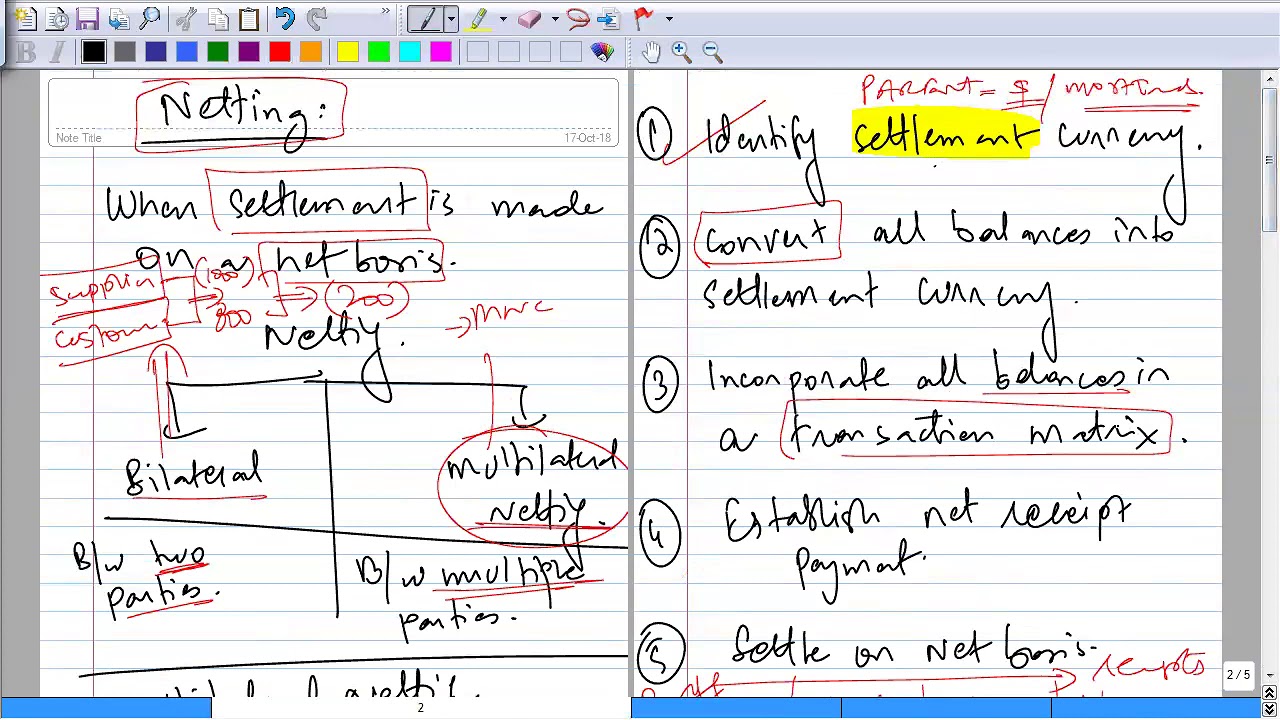 Netting:
Note Title
17-Oct-18
When settlement is made
on a net basis.
Supplier (1000)
Customer 800 (200)
→ MNC
Netting.
Bilateral
Multilateral
Netting.
B/w two
parties.
B/w multiple
parties.
2
PARENT = $ /
① Identify settlement currency.
② Convert all balances into
settlement currency.
③ Incorporate all balances in
a transaction matrix.
④ Establish net receipt
payment.
⑤ Settle on Net basis.
receipts
2 / 5